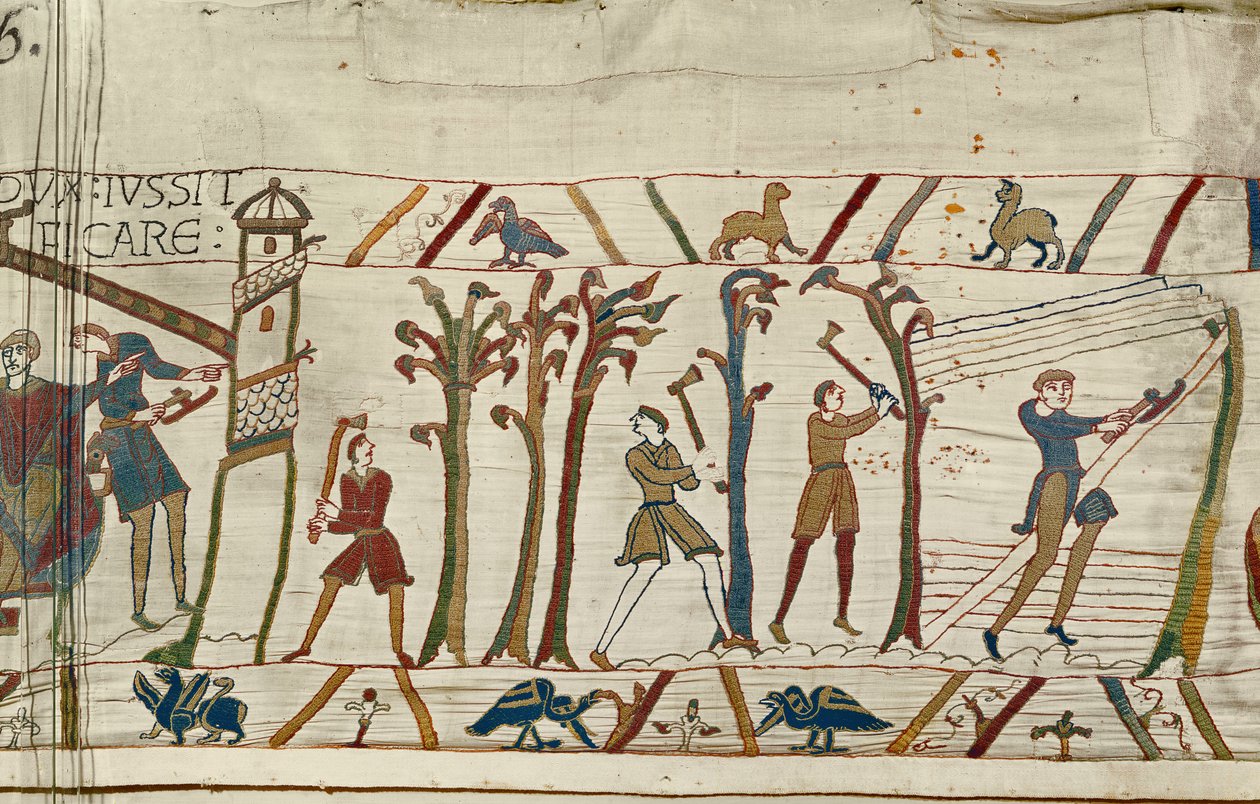 6.
DVX:IVSSIT
FICARE :